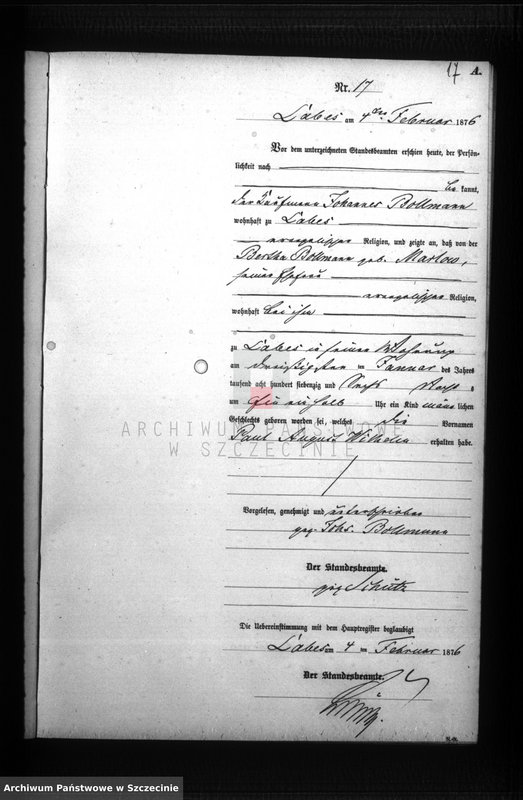 17 A.
Nr. 17
Labes am 4ten Februar 1876
Vor dem unterzeichneten Standesbeamten erschien heute, der Persön-
lichkeit nach
be kannt,
der Kaufmann Johannes Bollmann
wohnhaft zu Labes
evangelischer Religion, und zeigte an, daß von der
Bertha Bollmann geb. Marlow,
seiner Ehefrau
evangelischer Religion,
wohnhaft bei ihm
zu Labes in seiner Wohnung
am dreißigsten ten Januar des Jahres
tausend acht hundert siebenzig und sechs Nachts
um ein halb Uhr ein Kind männ lichen
Geschlechts geboren worden sei, welches die Vornamen
Paul August Wilhelm erhalten habe.
Vorgelesen, genehmigt und unterschrieben
gez. Johs. Bollmann
Der Standesbeamte.
gez. Schütz
Die Uebereinstimmung mit dem Hauptregister beglaubigt
Labes am 4 ten Februar 1876
Der Standesbeamte.
ARCHIWUM PAŃSTWOWE
W SZCZECINIE
Archiwum Państwowe w Szczecinie